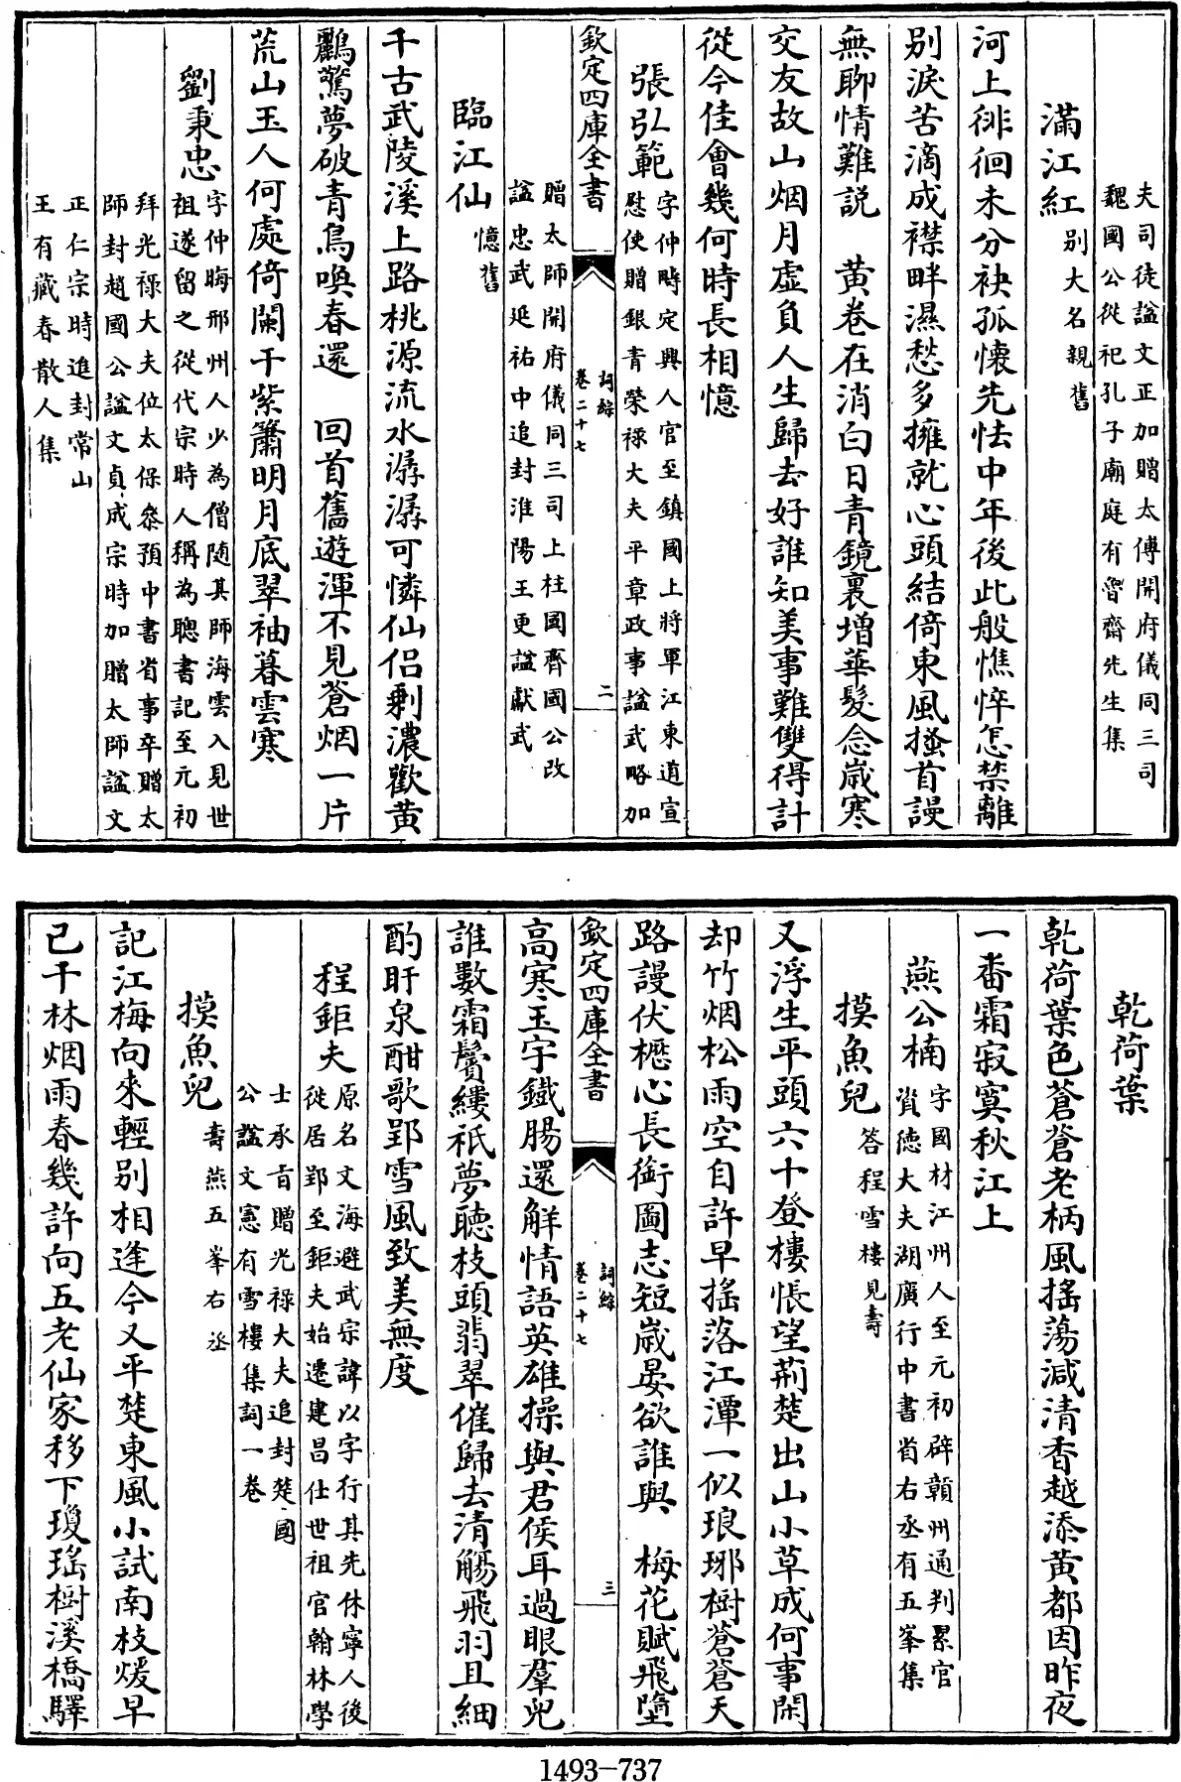 夫司徒諡文正加贈太傅開府儀同三司
魏國公從祀孔子廟庭有魯齋先生集
滿江紅別大名親舊
河上徘徊未分袂孤懷先怯中年後此般憔悴怎禁離
別淚苦滴成襟畔濕愁多擁就心頭結倚東風搔首謾
無聊情難説　黄卷在消白日青鏡裏增華髮念嵗寒
交友故山烟月虛負人生歸去好誰知美事難雙得計
從今佳會幾何時長相憶
張弘範
字仲疇定興人官至鎮國上將軍江東道宣
慰使贈銀青榮祿大夫平章政事諡武略加
欽定四庫全書
詞綜
卷二十七
二
贈太師開府儀同三司上柱國齊國公改
諡忠武延祐中追封淮陽王更諡獻武
臨江仙憶舊
千古武陵溪上路桃源流水潺潺可憐仙侶剩濃歡黄
鸝驚夢破青鳥喚春還　回首舊遊渾不見蒼烟一片
荒山玉人何處倚闌干紫簫明月底翠袖暮雲寒
劉秉忠
字仲晦邢州人少為僧随其師海雲入見世
祖遂留之從代宗時人稱為聰書記至元初
拜光祿大夫位太保叅預中書省事卒贈太
師封趙國公諡文貞成宗時加贈太師諡文
正仁宗時進封常山
王有藏春散人集
乾荷葉
乾荷葉色蒼蒼老柄風搖蕩減清香越添黄都因昨夜
一番霜寂寞秋江上
燕公楠
字國材江州人至元初辟贛州通判累官
資德大夫湖廣行中書省右丞有五峯集
摸魚兒答程雪樓見壽
又浮生平頭六十登樓悵望荆楚出山小草成何事閑
却竹烟松雨空自許早搖落江潭一似琅琊樹蒼蒼天
路謾伏櫪心長銜圖志短嵗晏欲誰與　梅花賦飛墮
欽定四庫全書
詞綜
卷二十七
三
高寒玉宇鐵腸還解情語英雄操與君侯耳過眼羣兒
誰數霜鬢縷祇夢聽枝頭翡翠催歸去清觴飛羽且細
酌盱泉酣歌郢雪風致美無度
程鉅夫
原名文海避武宗諱以字行其先休寧人後
徙居郢至鉅夫始遷建昌仕世祖官翰林學
士承旨贈光祿大夫追封楚國
公諡文憲有雪樓集詞一卷
摸魚兒壽燕五峯右丞
記江梅向來輕别相逢今又平楚東風小試南枝煖早
已千林烟雨春幾許向五老仙家移下瓊瑤樹溪橋驛
1493-737